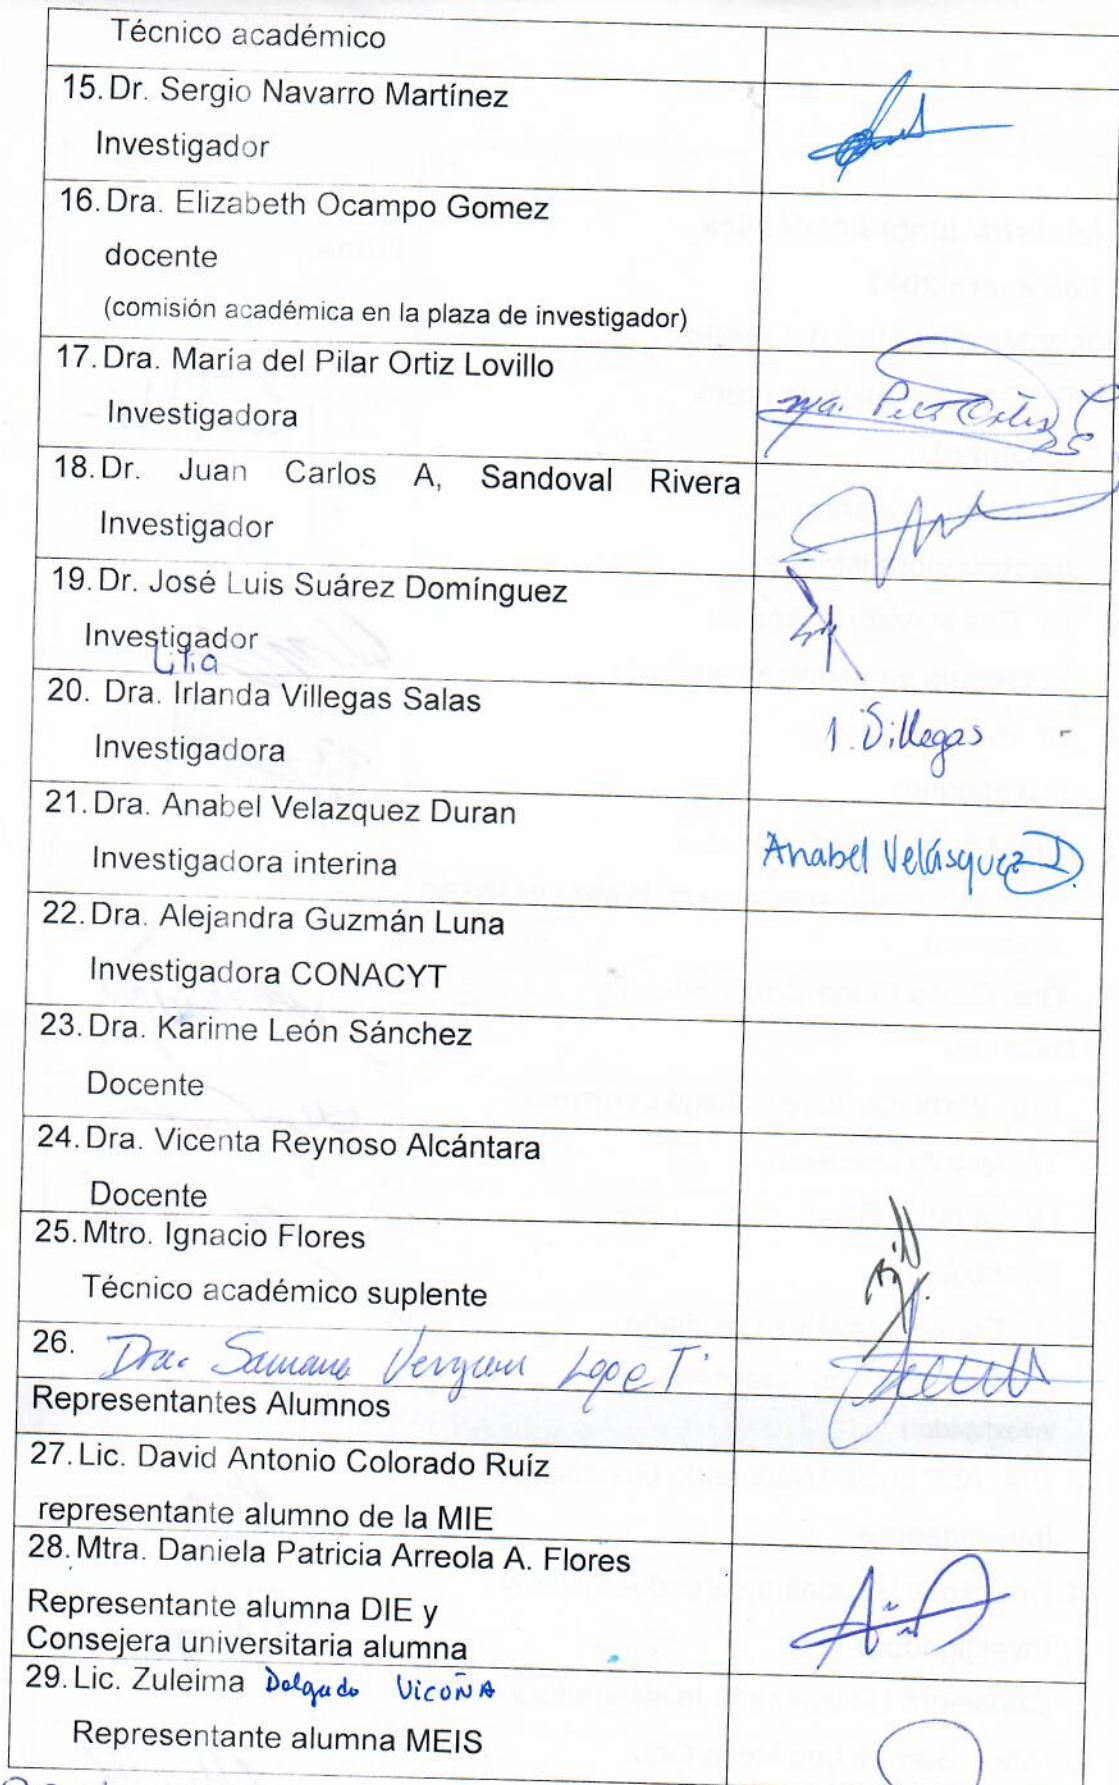 Técnico académico
15. Dr. Sergio Navarro Martínez
Investigador
16. Dra. Elizabeth Ocampo Gomez
docente
(comisión académica en la plaza de investigador)
17. Dra. María del Pilar Ortiz Lovillo
Investigadora
Ma. Pilar Ortiz L
18. Dr. Juan Carlos A, Sandoval Rivera
Investigador
19. Dr. José Luis Suárez Domínguez
Investigador
Lilia
20. Dra. Irlanda Villegas Salas
I. Villegas
Investigadora
21. Dra. Anabel Velazquez Duran
Anabel Velásquez D.
Investigadora interina
22. Dra. Alejandra Guzmán Luna
Investigadora CONACYT
23. Dra. Karime León Sánchez
Docente
24. Dra. Vicenta Reynoso Alcántara
Docente
25. Mtro. Ignacio Flores
Técnico académico suplente
26. Dra. Lopez
Representantes Alumnos
27. Lic. David Antonio Colorado Ruíz
representante alumno de la MIE
28. Mtra. Daniela Patricia Arreola A. Flores
Representante alumna DIE y
Consejera universitaria alumna
29. Lic. Zuleima Delgado Vicoña
Representante alumna MEIS